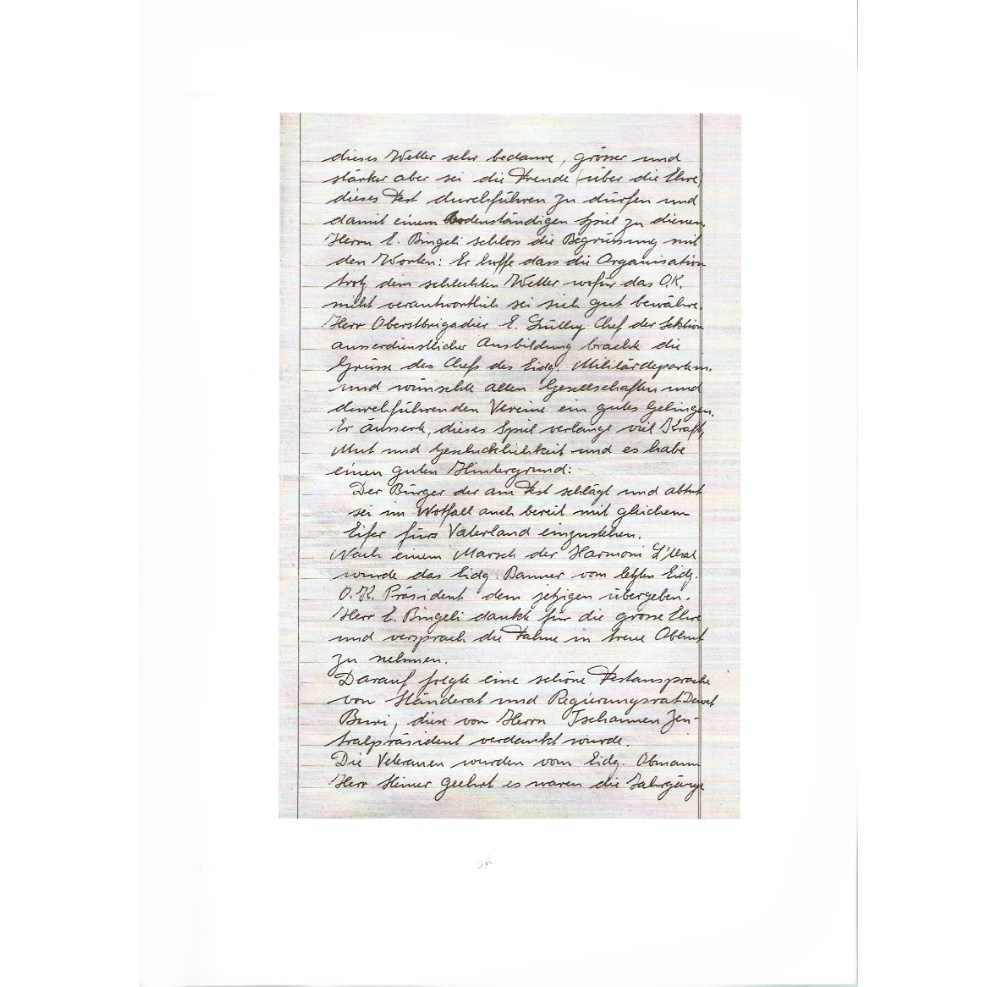 dieses Wetter sehr bedaure, grösser und
stärker aber sei die Freude (über die Ehre)
dieses Fest durchführen zu dürfen und
damit einem Bodenständigen Spiel zu dienen.
Herrn E. Bingeli schloss die Begrüssung mit
den Worten: Er hoffe dass die Organisation
trotz dem schlechten Wetter wofür das O.K.
nicht verantwortlich sei sich gut bewähre.
Herr Oberstbrigadier E. Chef der Sektion
ausserdienstlicher Ausbildung brachte die
Grüsse des Chefs des Eidg. Militärdepartem.
und wünschte allen Gesellschaften und
durchführenden Vereine ein gutes Gelingen.
Er äusserte, dieses Spiel verlange viel Kraft,
Mut und Geschicklichkeit und es habe
einen guten Hintergrund:
Der Bürger der am Fest schlägt und abtut
sei im Notfall auch bereit mit gleichem
Eifer fürs Vaterland einzustehen.
Nach einem Marsch der Harmoni L'thal
wurde das Eidg. Banner vom letzten Eidg.
O.K. Präsident dem jetzigen übergeben.
Herr E. Bingeli dankte für die grosse Ehre
und versprach die Fahne in treue Obhut
zu nehmen.
Darauf folgte eine schöne Festansprache
von Ständerat und Regierungsrat Dewet
Buri, diese von Herrn Tschannen Zen-
tralpräsident verdankt wurde.
Die Veteranen wurden vom Eidg. Obmann
Herr geehrt es waren die Jahrgänge